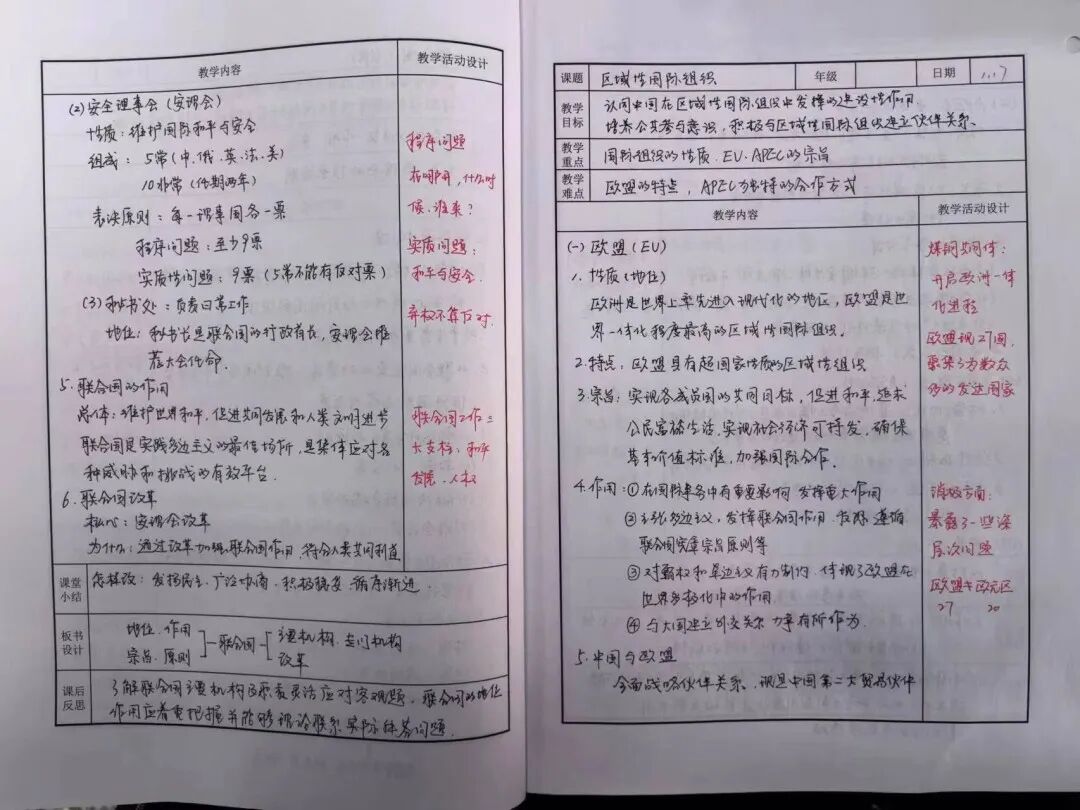 教学内容
教学活动设计
(2)安全理事会(安理会)
性质：维护国际和平与安全
组成：5常(中、俄、英、法、美)
10非常(任期两年)
表决原则：每一理事国各一票
程序问题：至少9票
实质性问题：9票(5常不能有反对票)
(3)秘书处：负责日常工作
地位：秘书长是联合国的行政首长，安理会推
荐大会任命.
5.联合国的作用
总体：维护世界和平，促进共同发展和人类文明进步
联合国是实践多边主义的最佳场所，是集体应对各
种威胁和挑战的有效平台.
6.联合国改革
核心：安理会改革
为什么：通过改革加强联合国作用，符合人类共同利益
程序问题
在哪开，什么时
候、谁来？
实质问题：
和平与安全.
弃权不算反对.
联合国工作三
大支柱：和平
发展、人权
课堂
小结
怎样改：发扬民主，广泛协商，积极稳妥，循序渐进.
板书
设计
地位、作用
宗旨、原则
联合国
主要机构、专门机构
改革
课后
反思
了解联合国主要机构及职责灵活应对客观题，联合国的地位
作用应着重把握并能够理论联系实际解答问题.
课题
区域性国际组织
年级
日期
11.17
教学
目标
认同中国在区域性国际组织中发挥的建设性作用
培养公共参与意识，积极与区域性国际组织建立伙伴关系.
教学
重点
国际组织的性质、EU、APEC的宗旨
教学
难点
欧盟的特点，APEC独特的合作方式
教学内容
教学活动设计
(一)欧盟(EU)
1.性质(地位)
欧洲是世界上率先进入现代化的地区，欧盟是世
界一体化程度最高的区域性国际组织.
2.特点：欧盟具有超国家性质的区域性组织
3.宗旨：实现各成员国的共同目标，促进和平，追求
公民富裕生活，实现社会经济可持发，确保
基本价值标准，加强国际合作.
4.作用：①在国际事务中有重要影响 发挥重大作用
②主张多边主义，发挥联合国作用
遵循
联合国宪章宗旨原则等
③对霸权和单边主义有力制约，体现了欧盟在
世界多极化中的作用.
④与大国建立外交关系 力争有所作为.
5.中国与欧盟
全面战略伙伴关系，现是中国第二大贸易伙伴
煤钢共同体：
开启欧洲一体
化进程
欧盟现27国，
聚集了为数众
多的发达国家
消极方面：
暴露了一些深
层次问题
欧盟≠欧元区
27 20